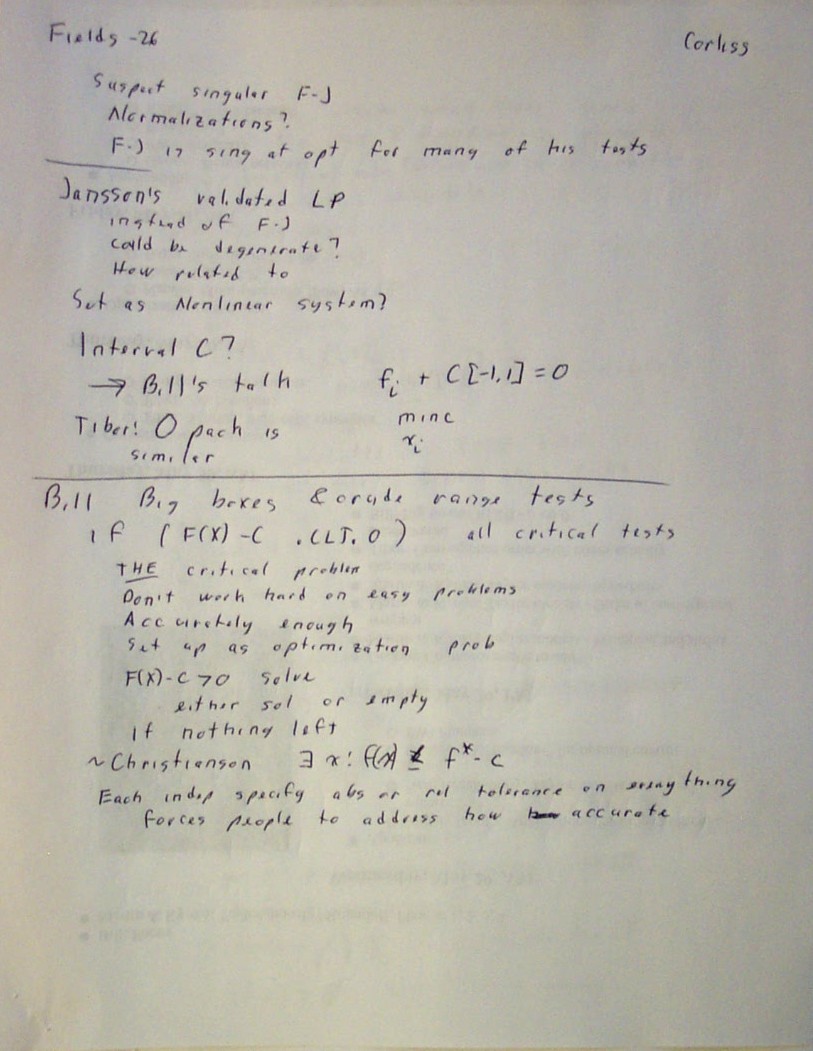 Fields -26
Corliss
Suspect singular F-J
Normalizations?
F-J is sing at opt for many of his tests
Jansson's validated LP
instead of F-J
could be degenerate?
How related to
Set as Nonlinear system?
Interval C?
→ Bill's talk
fᵢ + C[-1,1] = 0
Tiber! O pack is
similar
min c
xᵢ
Bill Big boxes & crude range tests
if ( F(X) - C .LT. 0 ) all critical tests
THE critical problem
Don't work hard on easy problems
Accurately enough
Set up as optimization prob
F(X)-C > 0 solve
either sol or empty
if nothing left
~ Christianson ∃ x: f(x) ≤ f*- c
Each indep specify abs or rel tolerance on everything
forces people to address how accurate